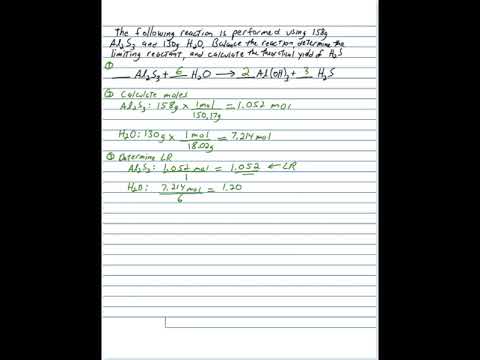 The following reaction is performed using 158g
Al2S3 and 130g H2O, Balance the reaction, determine the
limiting reactant, and calculate the theoretical yield of H2S
① __ Al2S3 + 6 H2O → 2 Al(OH)3 + 3 H2S
② Calculate moles
Al2S3: 158g × 1mol / 150.17g = 1.052 mol
H2O: 130g × 1mol / 18.02g = 7.214 mol
③ Determine LR
Al2S3: 1.052 mol / 1 = 1.052 ← LR
H2O: 7.214 mol / 6 = 1.20